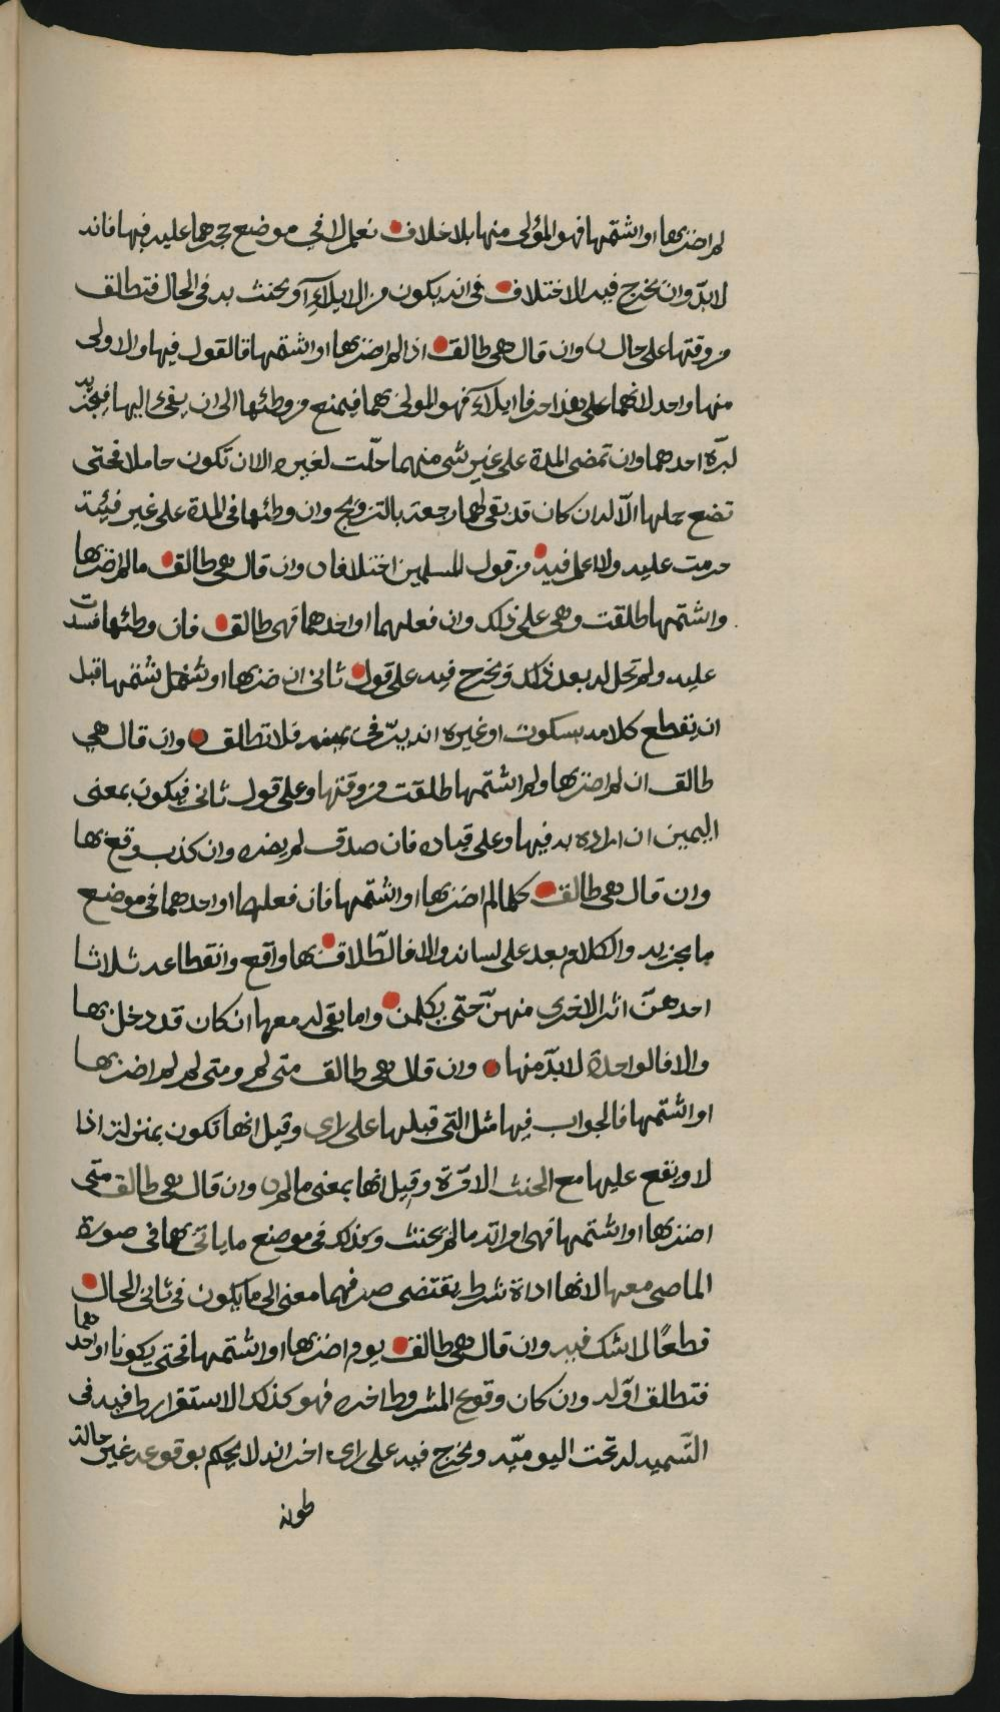 لم اضربها او اشتمها فهو المؤلى منها بلا خلاف نعم الا في موضع حجرهما عليه فيها فانه
لابد وان يخرج فيه الاختلاف في انه يكون من الايلاء او يحنث به في الحال فتطلق
من وقتها على حال وان قال هي طالق اذا لم اضربها او اشتمها فالقول فيها والاولى
منها واحد لانهما على هذا حرفا ايلاء فهو المولى بهما فيمنع من وطئها الى ان يفيء اليها فيجزيه
لبره احدهما وان تمضى المدة على غير شى منهما حلت لغيره الا ان تكون حاملا فحتى
تضع حملها الا له ان كان قد بقى لهما رجعة بالتزويج وان وطئها في المدة على غير فيئة
حرمت عليه ولا اعلم فيه من قول المسلمين اختلافا وان قال هي طالق ما لم اضربها
واشتمها طلقت وهي على ذلك وان فعلهما او احدهما فهى طالق فان وطئها فسدت
عليه ولم تحل له بعد ذلك ويخرج فيه على قول ثانى ان ضربها او شتمها قبل
ان يقطع كلامه بسكوت او غيره انه يبر في يمينه فلا تطلق وان قال هي
طالق ان لم اضربها ولم اشتمها طلقت من وقتها وعلى قول ثانى فيكون بمعنى
اليمين ان اراده به فيها وعلى قياده فان صدق لم يضره وان كذب وقع بها
وان قال هي طالق كلما لم اضربها او اشتمها فان فعلهما او احدهما في موضع
ما يجزيه والكلام بعد على لسانه والا فالطلاق بها واقع وانقطاعه ثلاثا
احدهن اثر الاخرى منهن حتى يكلمن واما بقى له معها ان كان قد دخل بها
والا فالواحدة لابد منها وان قال هي طالق متى لم ومتى لم اضربها
او اشتمها فالجواب فيها مثل التى قبلها على راى وقيل انها تكون بمنزلة اذا
لا ويقع عليها مع الحنث الا مرة وقيل انها بمعنى ما لم وان قال هي طالق متى
اضربها او اشتمها فهى امراته ما لم يحنث وكذلك في موضع ما ياتى بها في صورة
الماضى معها لانها اداة شرط يقتضى صرفهما معنى الى ما يكون في ثانى الحال
قطعا لا شك فيه وان قال هي طالق يوم اضربها او اشتمها فحتى يكونا او احدهما
فتطلق اوله وان كان وقوع المشروط اخره فهو كذلك لاستقرار ظرفيه في
التسميه له تحت اليوميه ويخرج فيه على راى اخر انه لا يحكم بوقوعه غير حالة